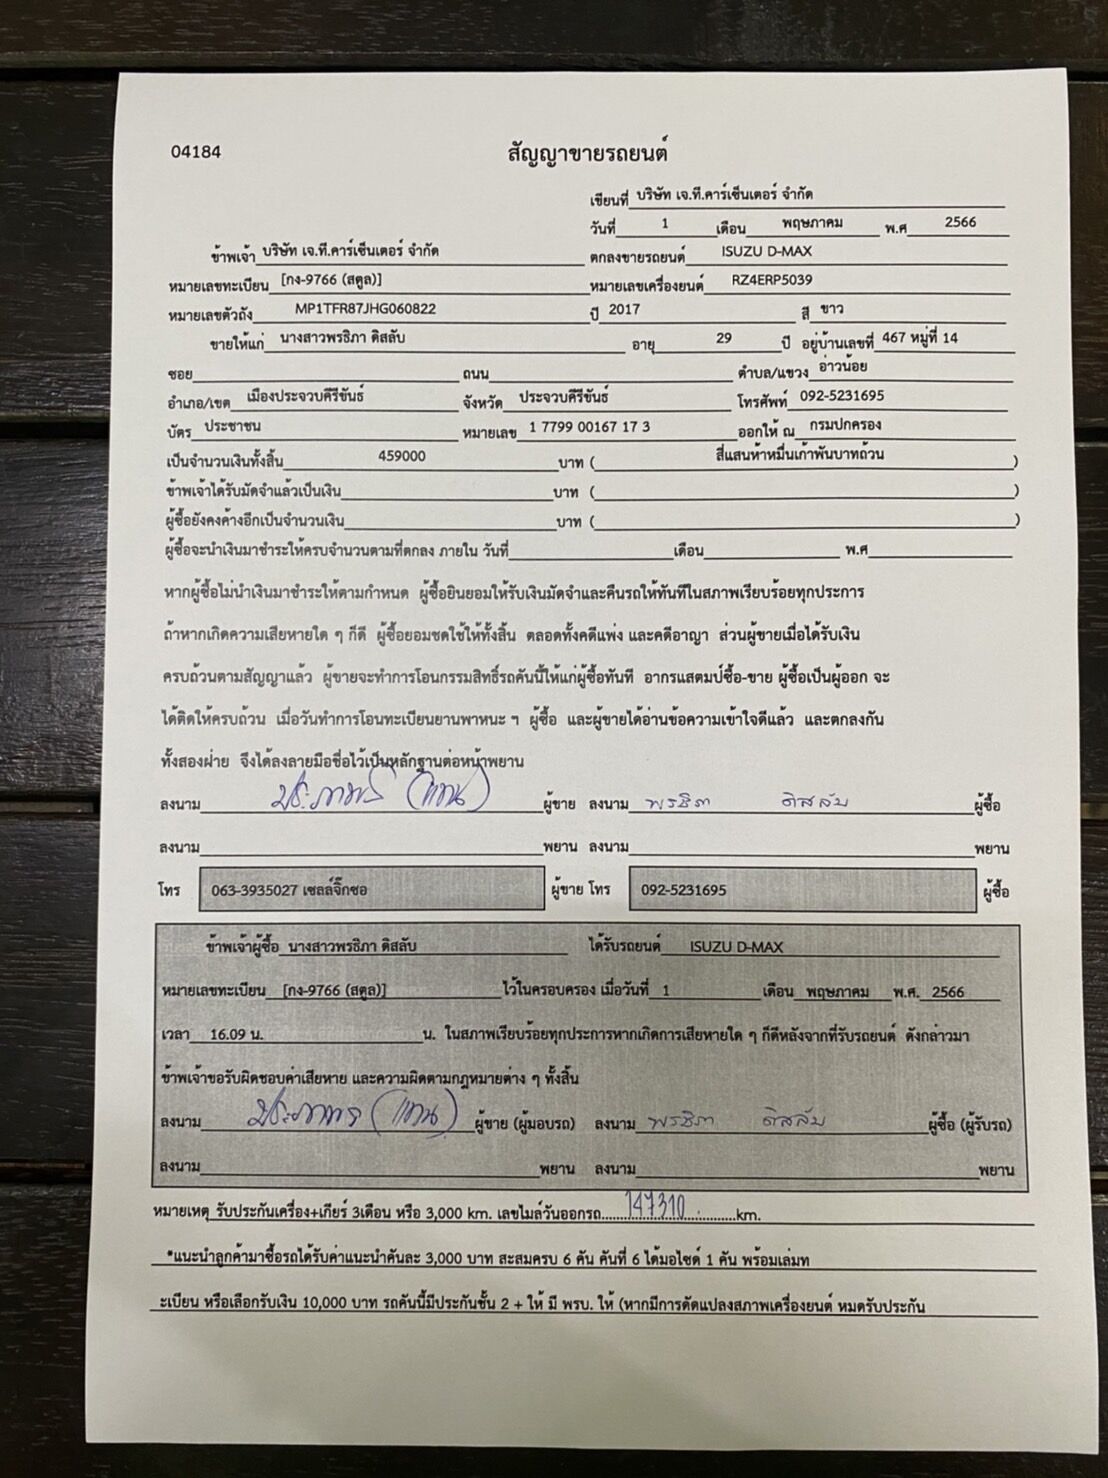 04184
สัญญาขายรถยนต์
เขียนที่ บริษัท เจ.ที.คาร์เซ็นเตอร์ จำกัด
วันที่ 1 เดือน พฤษภาคม พ.ศ 2566
ข้าพเจ้า บริษัท เจ.ที.คาร์เซ็นเตอร์ จำกัด ตกลงขายรถยนต์ ISUZU D-MAX
หมายเลขทะเบียน [กง-9766 (สตูล)] หมายเลขเครื่องยนต์ RZ4ERP5039
หมายเลขตัวถัง MP1TFR87JHG060822 ปี 2017 สี ขาว
ขายให้แก่ นางสาวพรธิภา ดิสลับ อายุ 29 ปี อยู่บ้านเลขที่ 467 หมู่ที่ 14
ซอย ถนน ตำบล/แขวง อ่าวน้อย
อำเภอ/เขต เมืองประจวบคีรีขันธ์ จังหวัด ประจวบคีรีขันธ์ โทรศัพท์ 092-5231695
บัตร ประชาชน หมายเลข 1 7799 00167 17 3 ออกให้ ณ กรมปกครอง
เป็นจำนวนเงินทั้งสิ้น 459000 บาท ( สี่แสนห้าหมื่นเก้าพันบาทถ้วน )
ข้าพเจ้าได้รับมัดจำแล้วเป็นเงิน บาท ( )
ผู้ซื้อยังคงค้างอีกเป็นจำนวนเงิน บาท ( )
ผู้ซื้อจะนำเงินมาชำระให้ครบจำนวนตามที่ตกลง ภายใน วันที่ เดือน พ.ศ
หากผู้ซื้อไม่นำเงินมาชำระให้ตามกำหนด ผู้ซื้อยินยอมให้รับเงินมัดจำและคืนรถให้ทันทีในสภาพเรียบร้อยทุกประการ
ถ้าหากเกิดความเสียหายใด ๆ ก็ดี ผู้ซื้อยอมชดใช้ให้ทั้งสิ้น ตลอดทั้งคดีแพ่ง และคดีอาญา ส่วนผู้ขายเมื่อได้รับเงิน
ครบถ้วนตามสัญญาแล้ว ผู้ขายจะทำการโอนกรรมสิทธิ์รถคันนี้ให้แก่ผู้ซื้อทันที อากรแสตมป์ซื้อ-ขาย ผู้ซื้อเป็นผู้ออก จะ
ได้ติดให้ครบถ้วน เมื่อวันทำการโอนทะเบียนยานพาหนะ ฯ ผู้ซื้อ และผู้ขายได้อ่านข้อความเข้าใจดีแล้ว และตกลงกัน
ทั้งสองฝ่าย จึงได้ลงลายมือชื่อไว้เป็นหลักฐานต่อหน้าพยาน
ลงนาม (แทน) ผู้ขาย ลงนาม พรธิภา ดิสลับ ผู้ซื้อ
ลงนาม พยาน ลงนาม พยาน
โทร 063-3935027 เซลล์จิ๊กซอ ผู้ขาย โทร 092-5231695 ผู้ซื้อ
ข้าพเจ้าผู้ซื้อ นางสาวพรธิภา ดิสลับ ได้รับรถยนต์ ISUZU D-MAX
หมายเลขทะเบียน [กง-9766 (สตูล)] ไว้ในครอบครอง เมื่อวันที่ 1 เดือน พฤษภาคม พ.ศ. 2566
เวลา 16.09 น. น. ในสภาพเรียบร้อยทุกประการหากเกิดการเสียหายใด ๆ ก็ดีหลังจากที่รับรถยนต์ ดังกล่าวมา
ข้าพเจ้าขอรับผิดชอบค่าเสียหาย และความผิดตามกฎหมายต่าง ๆ ทั้งสิ้น
ลงนาม (แทน) ผู้ขาย (ผู้มอบรถ) ลงนาม พรธิภา ดิสลับ ผู้ซื้อ (ผู้รับรถ)
ลงนาม พยาน ลงนาม พยาน
หมายเหตุ รับประกันเครื่อง+เกียร์ 3เดือน หรือ 3,000 km. เลขไมล์วันออกรถ.....147310..........km.
*แนะนำลูกค้ามาซื้อรถได้รับค่าแนะนำคันละ 3,000 บาท สะสมครบ 6 คัน คันที่ 6 ได้มอไซด์ 1 คัน พร้อมเล่มท
ะเบียน หรือเลือกรับเงิน 10,000 บาท รถคันนี้มีประกันชั้น 2 + ให้ มี พรบ. ให้ (หากมีการดัดแปลงสภาพเครื่องยนต์ หมดรับประกัน